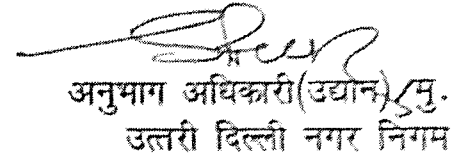 अनुभाग अधिकारी(उद्यान)/मु.
उत्तरी दिल्ली नगर निगम